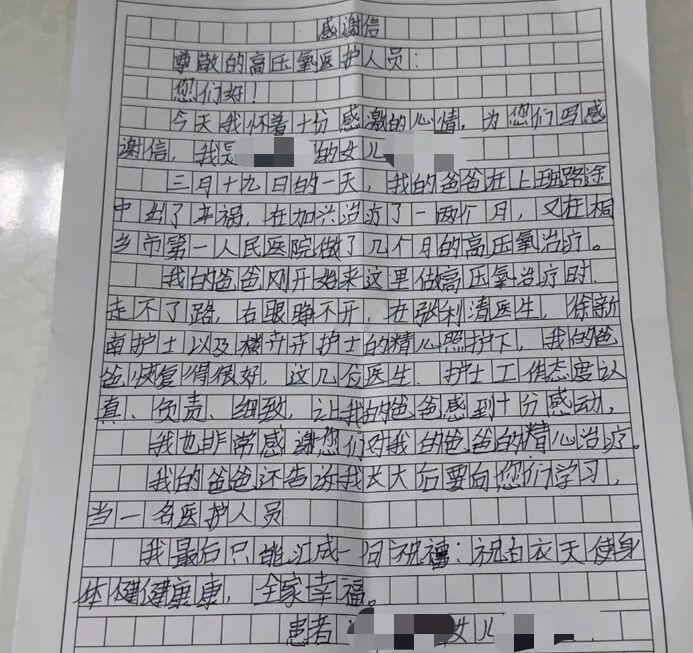 感谢信
尊敬的高压氧医护人员：
您们好！
今天我怀着十分感激的心情，为您们写感
谢信，我是 的女儿
三月十九日的一天，我的爸爸在上班路途
中出了车祸，在加兴治疗了一两个月，又在桐
乡市第一人民医院做了几个月的高压氧治疗。
我的爸爸刚开始来这里做高压氧治疗时.
走不了路，右眼睁不开，在张利清医生，徐新
南护士以及 卉卉护士的精心照护下，我的爸
爸恢复得很好，这几位医生.护士工作态度认
真、负责、细致，让我的爸爸感到十分感动，
我也非常感谢您们对我的爸爸的精心治疗。
我的爸爸还告诉我长大后要向您们学习，
当一名医护人员
我最后只能汇成一句祝福：祝白衣天使身
体健健康康，全家幸福。
患者： 女儿